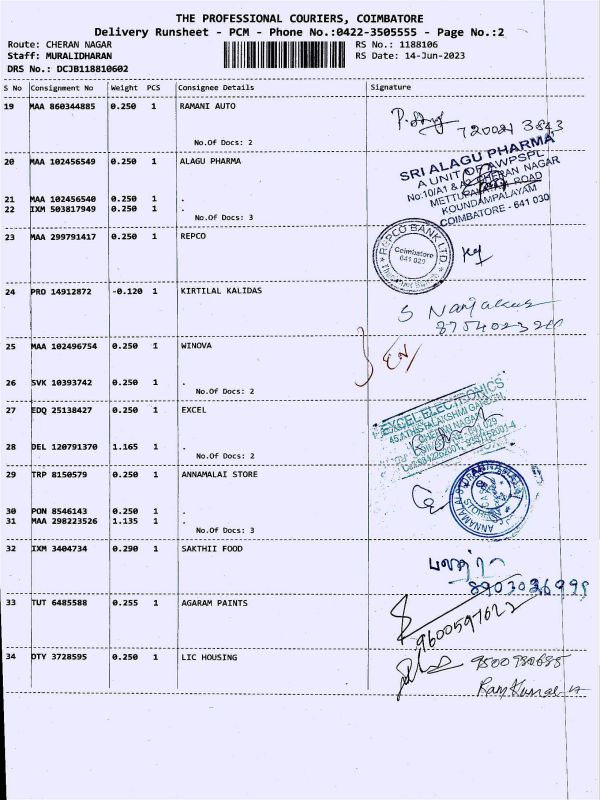 THE PROFESSIONAL COURIERS, COIMBATORE
Delivery Runsheet - PCM - Phone No.:0422-3505555 - Page No.:2
Route: CHERAN NAGAR RS No.: 1188106
Staff: MURALIDHARAN RS Date: 14-Jun-2023
DRS No.: DCJB118810602
S No Consignment No Weight PCS Consignee Details Signature
19 MAA 860344885 0.250 1 RAMANI AUTO
No.Of Docs: 2
20 MAA 102456549 0.250 1 ALAGU PHARMA
SRI ALAGU PHARMA
A UNIT OF AWPSPL
No:10/A1 & A2 CHERAN NAGAR
METTUPALAYAM ROAD
KOUNDAMPALAYAM
COIMBATORE - 641 030
21 MAA 102456540 0.250 1 .
22 IXM 503817949 0.250 1 .
No.Of Docs: 3
23 MAA 299791417 0.250 1 REPCO
REPCO BANK LTD.
Coimbatore
641 029
24 PRO 14912872 -0.120 1 KIRTILAL KALIDAS
25 MAA 102496754 0.250 1 WINOVA
26 SVK 10393742 0.250 1 .
No.Of Docs: 2
27 EDQ 25138427 0.250 1 EXCEL
EXCEL ELECTRONICS
28 DEL 120791370 1.165 1 .
No.Of Docs: 2
29 TRP 8150579 0.250 1 ANNAMALAI STORE
30 PON 8546143 0.250 1 .
31 MAA 298223526 1.135 1 .
No.Of Docs: 3
32 IXM 3404734 0.290 1 SAKTHII FOOD
33 TUT 6485588 0.255 1 AGARAM PAINTS
9600597622
34 DTY 3728595 0.250 1 LIC HOUSING